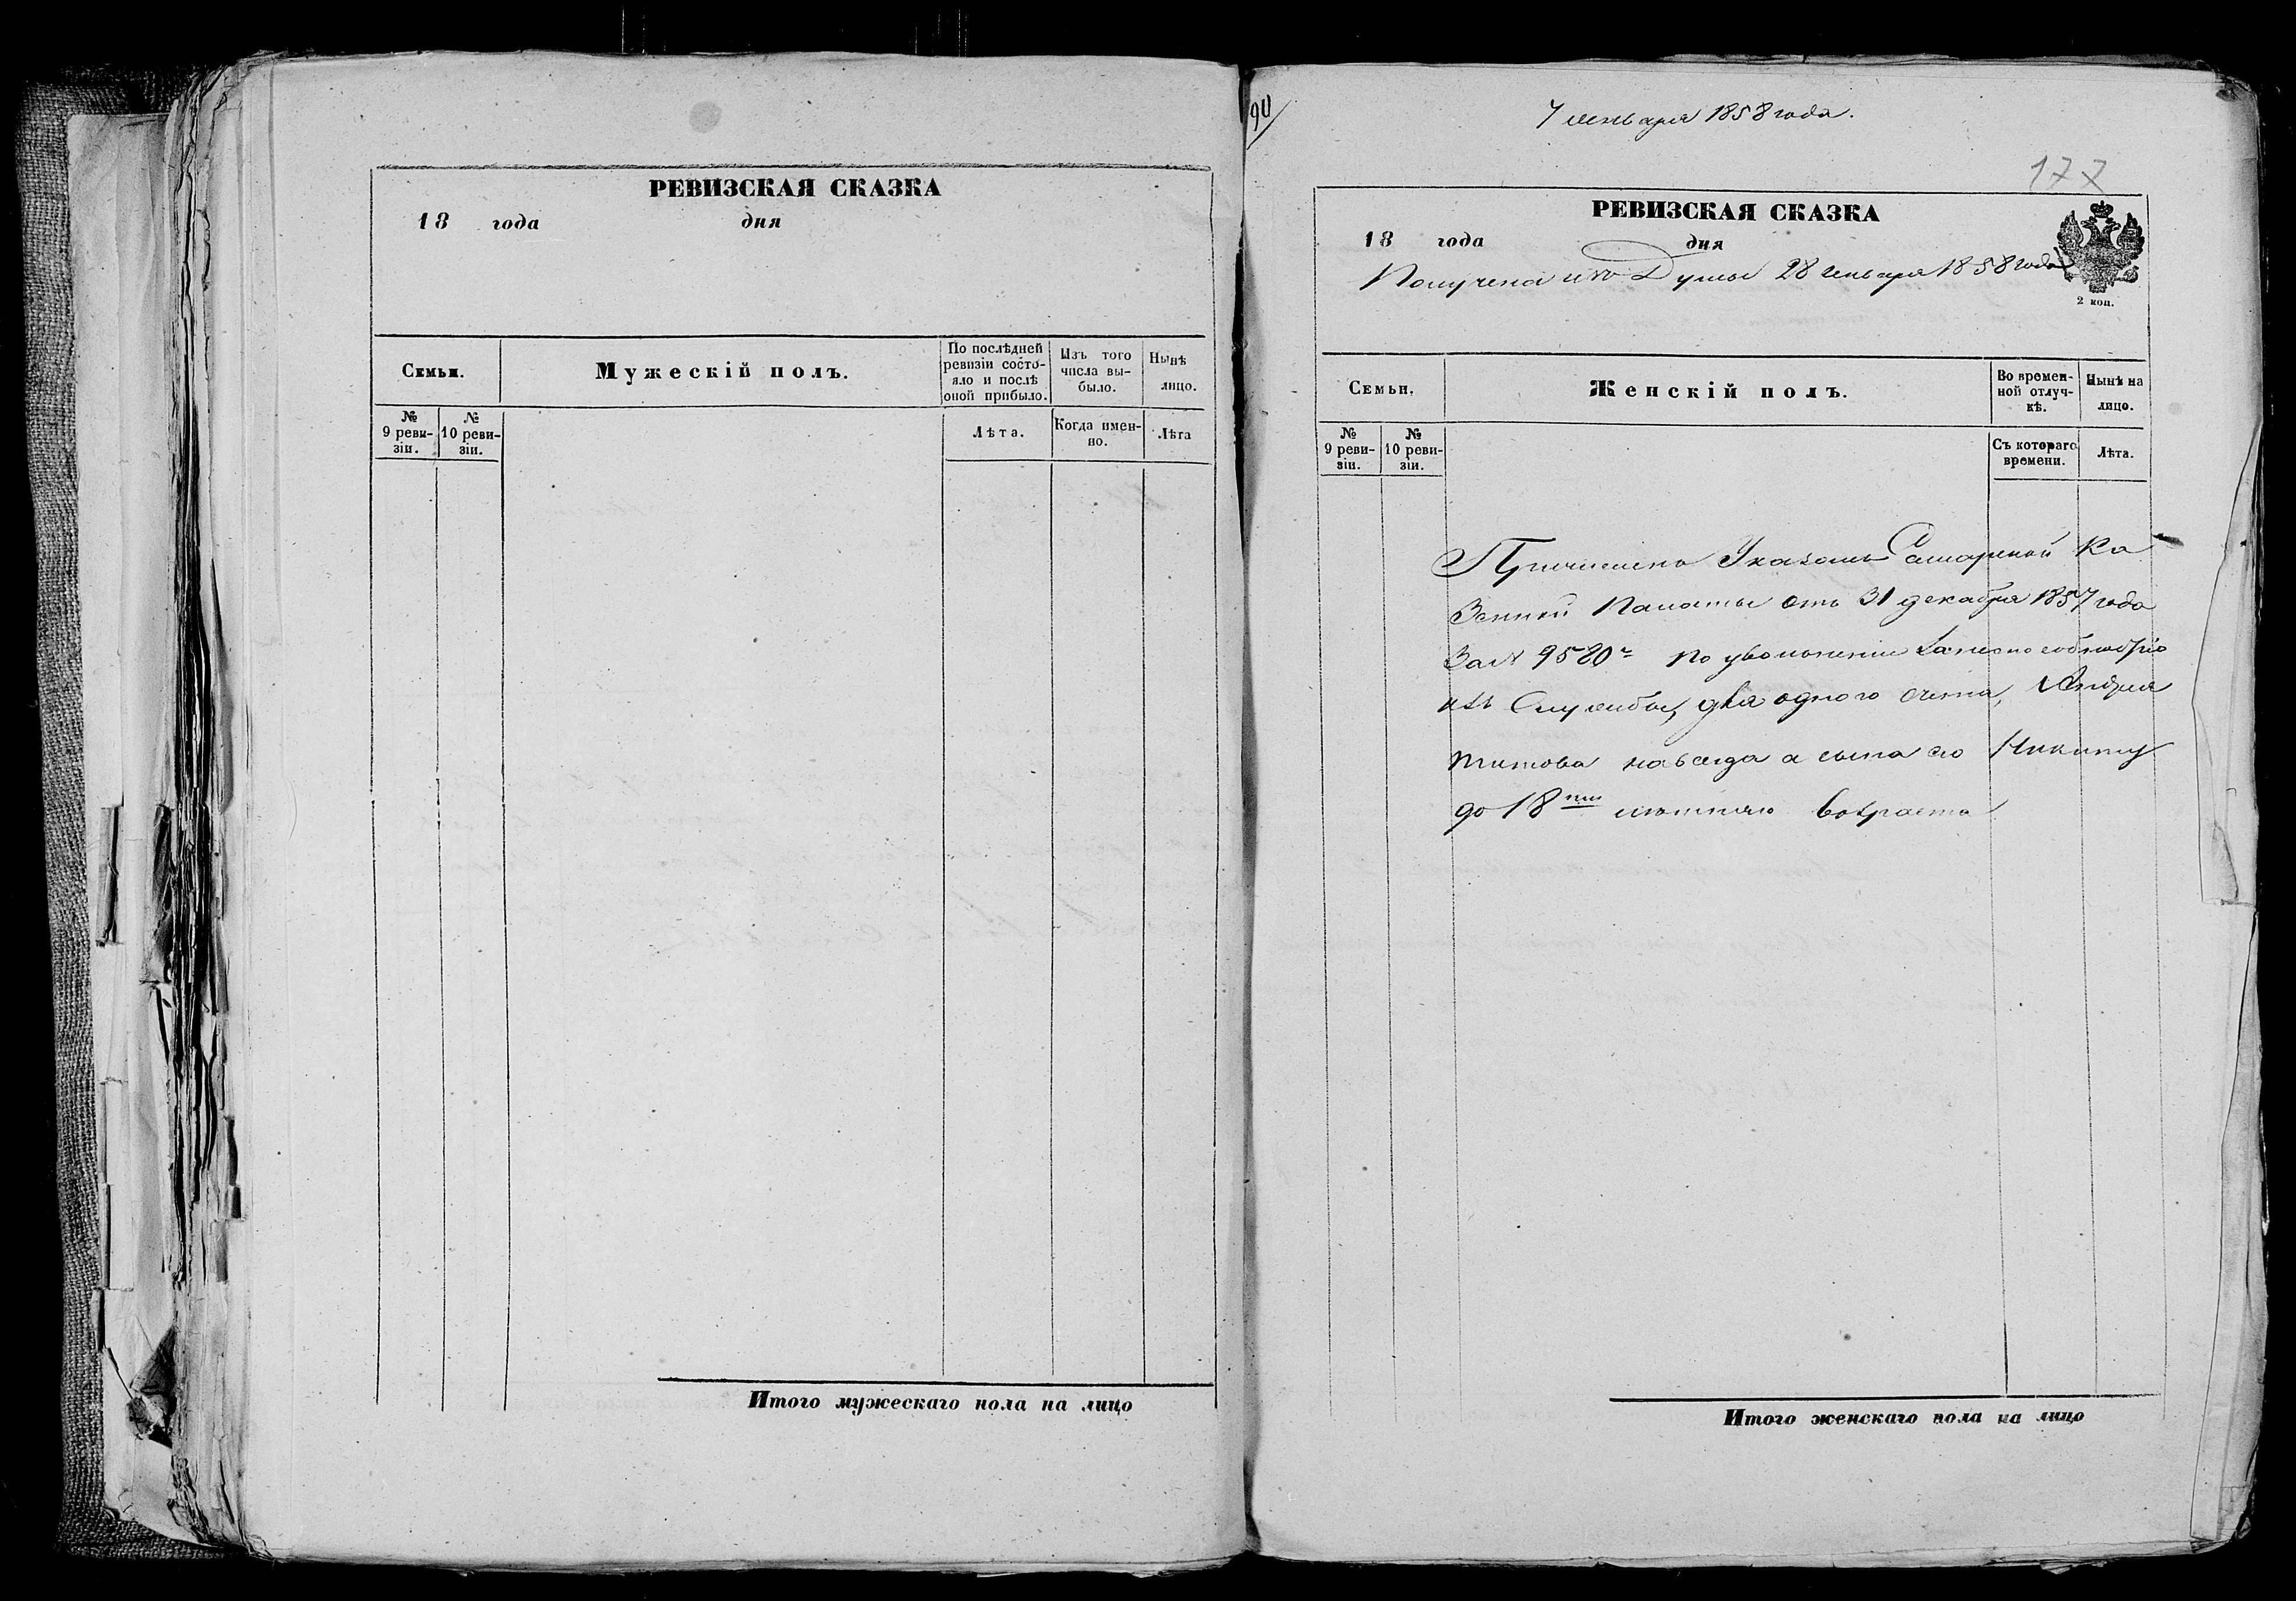 РЕВИЗСКАЯ СКАЗКА
18 года дня
Семьи.
Мужескій полъ.
По послѣдней
ревизіи состо-
яло и послѣ
оной прибыло.
Изъ того
числа вы-
было.
Нынѣ
лицо.
№
9 реви-
зіи.
№
10 реви-
зіи.
Лѣта.
Когда имен-
но.
Лѣта
Итого мужескаго пола на лицо
90
7 генваря 1858 года.
177
РЕВИЗСКАЯ СКАЗКА
18 года дня
Получена изъ Думы 28 генваря 1858 года
2 коп.
Семьи.
Женскій полъ.
Во времен-
ной отлуч-
кѣ.
Нынѣ на
лицо.
№
9 реви-
зіи.
№
10 реви-
зіи.
Съ котораго
времени.
Лѣта.
Причислено Указомъ Самарской Ка
зенной Палаты отъ 31 декабря 1857 года
За № 9580 по увольнении
изъ Службы, для одного счета, Андрея
Титова навсегда а сына его Никиту
до 18 лѣтняго возраста
Итого женскаго пола на лицо